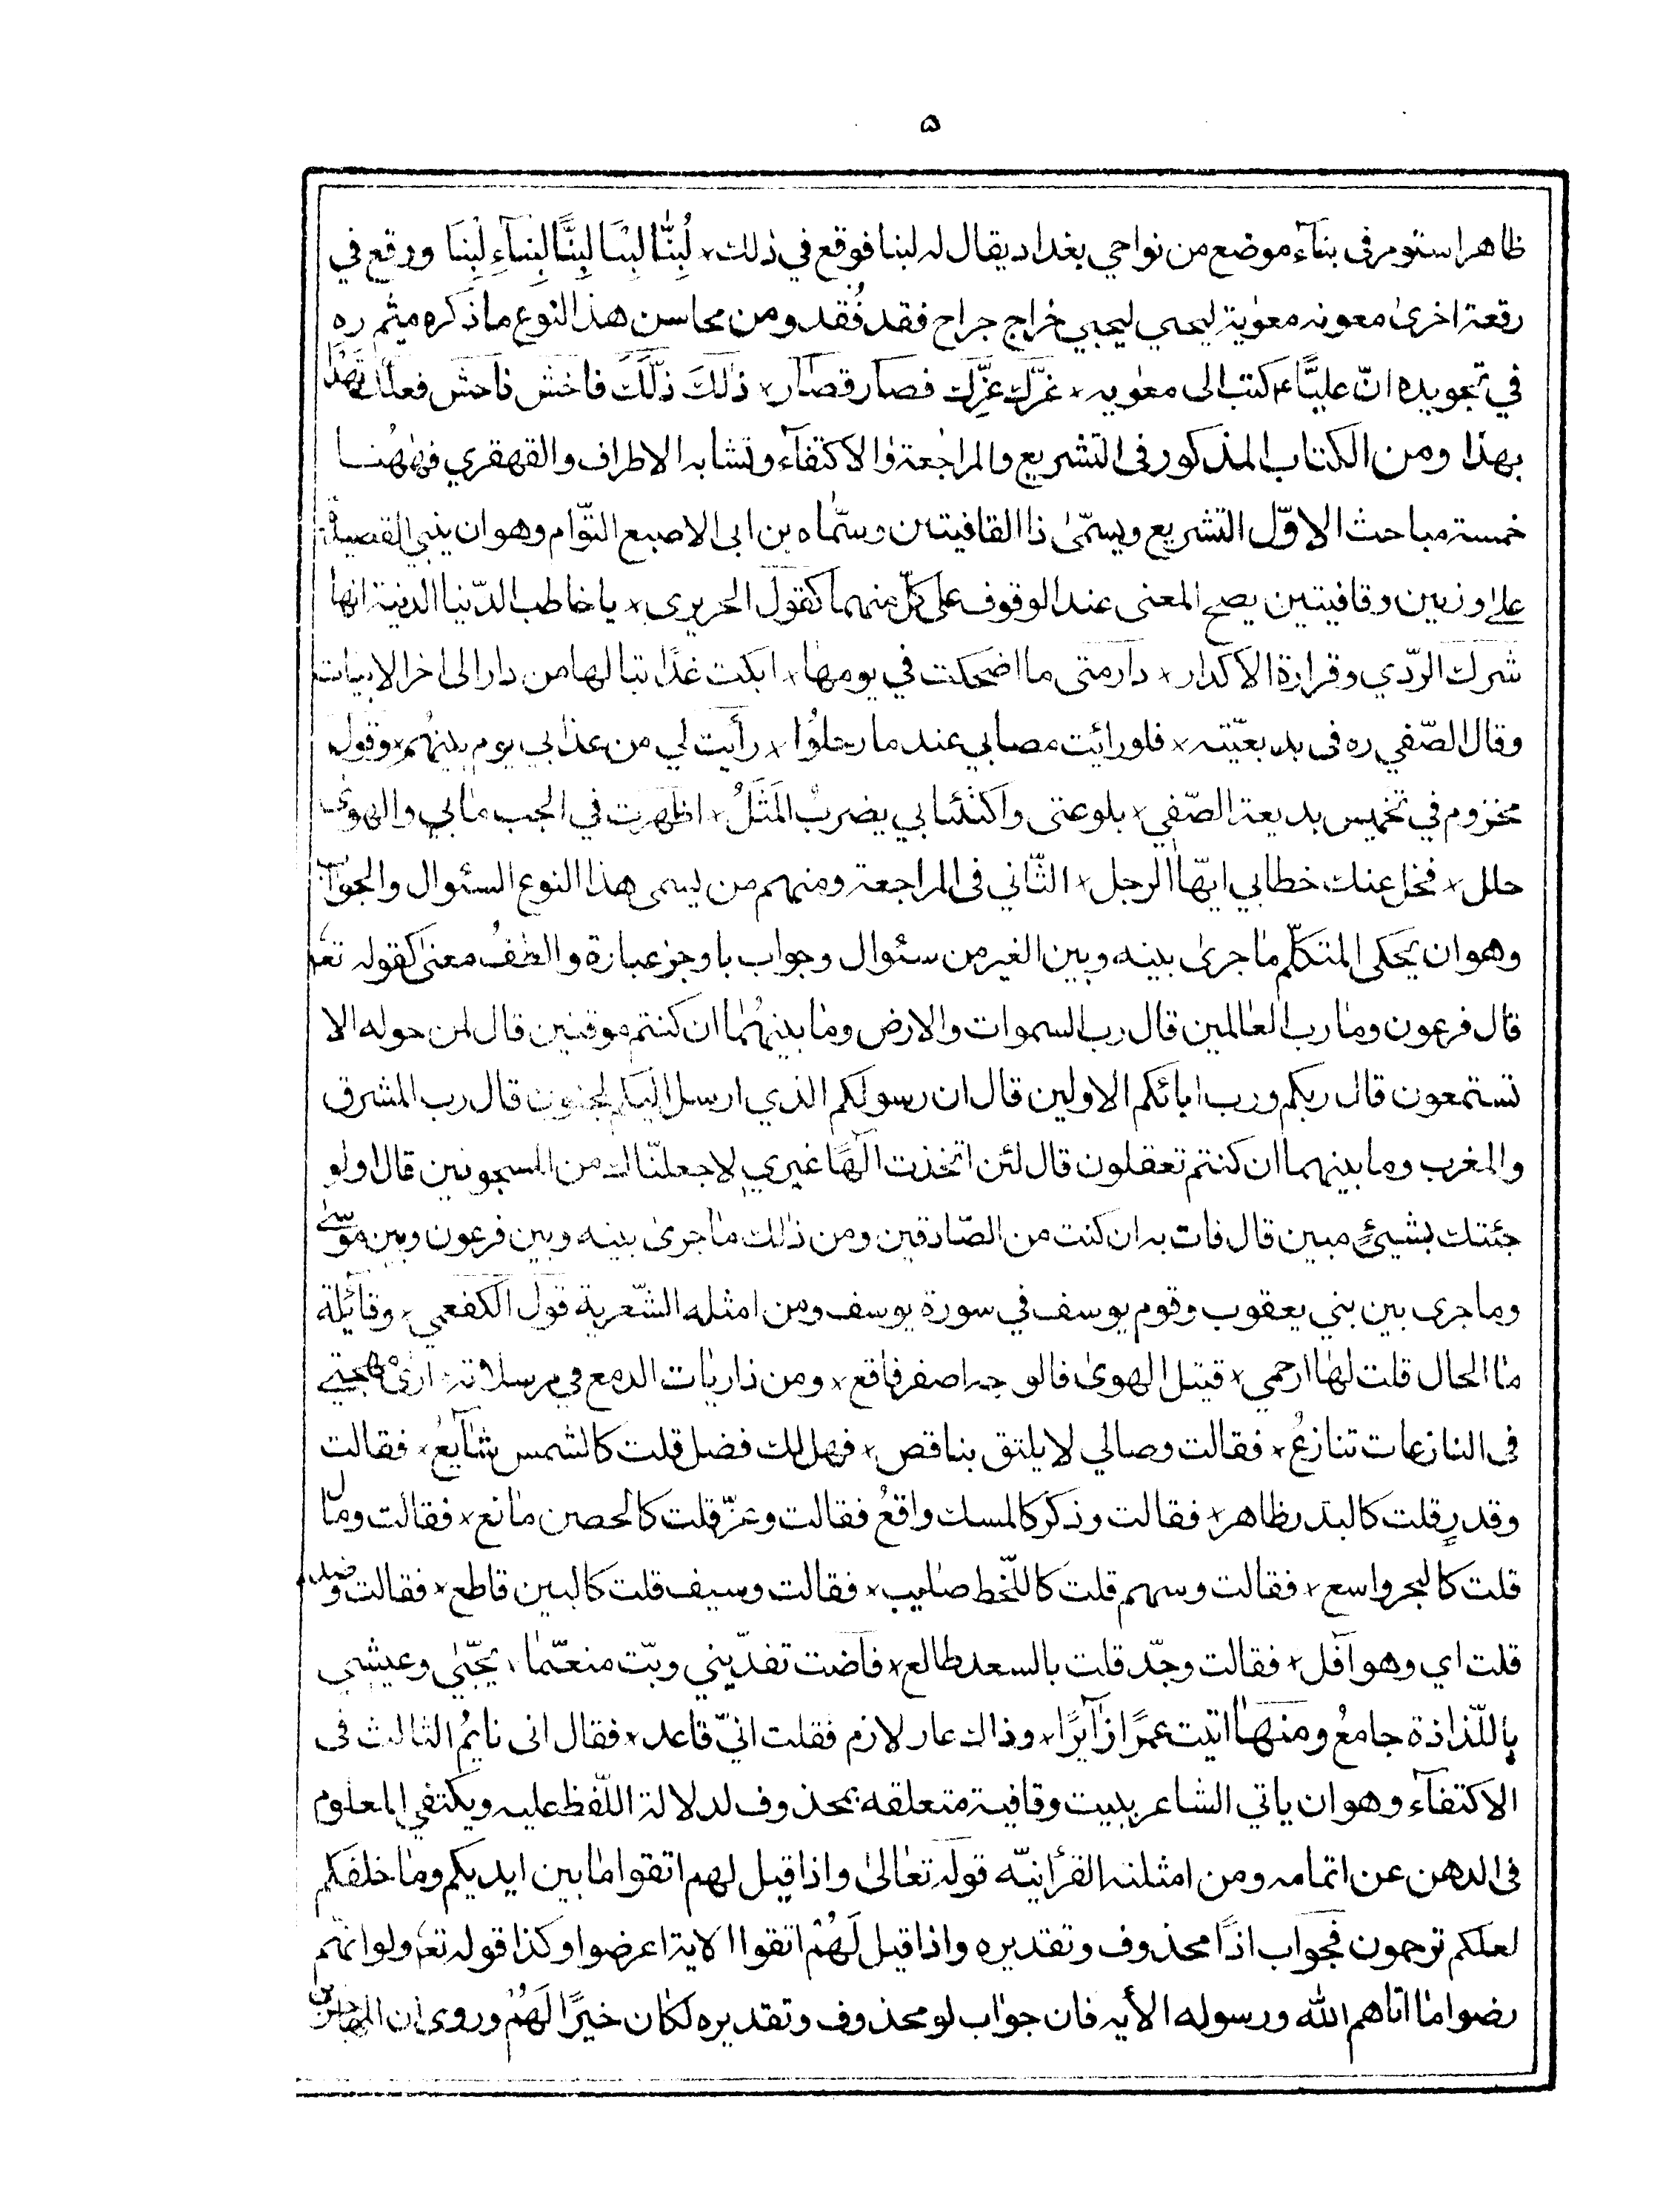 ۵
ظاهرا ستومر فى بنآء موضع من نواحي بغداد يقال له لبنا فوقع في ذلك × لُبِنّٰا لبْنَا لِبِنًّا لِبِنٰاءِ لِبِنَا ووقع في
رقعة اخرىٰ معونه معوٰية ليحيي ليجبي خراج جراح فقد فُقد ومن محاسن هذا النوع ما ذكره ميثم ره
في تجويده انّ عليّاً ع كتب الى معوٰيه × غرّك عزّك فصار قصٰار × ذٰلك ذلّك فاخش فاحش فعلك
بهذا ومن الكتاب المذكور فى التشريع والمراجعة والاكتفآء وتشابه الاطراف والقهقري فهٰهُنا
خمسة مباحث الاوّل التشريع ويسمّىٰ ذا القافيتين وسمّاه بن ابى الاصبع التوّام وهو ان يبني القصيدة
علے وزنين وقافيتين يصح المعنى عند الوقوف على كلّ منهما كقول الحريرى × يا خاطب الدّنيا الدنية انها
شرك الرّدي وقرارة الاكدار × دار متى ما اضحكت في يومها × ابكت غدًا تبا لها من دار الى اخر الابيات
وقال الصّفي ره فى بديعيّته × فلو رائيت مصابي عند ما رحلوُا × رأيت لي من عذابي يوم بينهُم × وقول
مخزوم في تخميس بديعة الصّفي × بلوعتى واكتئابي يضربُ المَثَلُ × اظهرت في الحب مٰا بي والهوىٰ
حلل × فخل عنك خطابي ايّها الرجل × الثّاني فى المراجعة ومنهم من يسمى هذا النوع السئوال والجواب
وهو ان يحكى المتكلّم مٰا جرىٰ بينه وبين الغير من سئوال وجواب باوجز عبارة والطفُ معنىٰ كقوله تع
قال فرعون ومٰا رب العٰالمين قال رب السموات والارض ومٰا بينهُمٰا ان كنتم موقنين قال لمن حوله الا
تستمعون قال ربكم ورب ابائكم الاولين قال ان رسولكم الذي ارسل اليكم لمجنون قال رب المشرق
والمغرب وما بينهما ان كنتم تعقلون قال لئن اتخذت الٰهًا غيري لاجعلنّك من المسجونين قال اولو
جئتك بشيئٍ مبين قال فات به ان كنت من الصّادقين ومن ذٰلك مٰا جرىٰ بينه وبين فرعون وبين موسىٰ
وما جرى بين بني يعقوب وقوم يوسف في سورة يوسف ومن امثله الشّعرية قول الكفعمي × وقآئلة
مٰا الحال قلت لهٰا ارحمي × قتيل الهوىٰ فالوجه اصفر فاقع × ومن ذاريٰات الدمع في مرسلاته × ارىٰ مهجتے
فى النازعات تنازعُ × فقالت وصالي لا يلتق بناقص × فهل لك فضل قلت كالشمس شٰآيعُ × فقالت
وقدرٍ قلت كالبدر ظاهر × فقالت وذكر كالمسك واقعُ فقالت وعزّ قلت كالحصن مٰانع × فقالت ومال
قلت كالبحر واسع × فقالت وسهم قلت كاللّحظ صايب × فقالت وسيف قلت كالبين قاطع × فقالت وضد
قلت اي وهو آفل × فقالت وجدّ قلت بالسعد طالع × فآضت تفدّيني وبتّ منعّمٰا × بحبّي وعيشي
باللّذاذة جامعُ ومنهٰا اتيت عمرًا زآيرًا × وذاك عار لازم فقلت انيّ قاعد × فقال انى نايمُ الثالث فى
الاكتفآء وهو ان ياتي الشاعر ببيت وقافية متعلقه بمحذوف لدلالة اللّفظ عليه ويكتفي المعلوم
فى الدهن عن اتمامه ومن امثلته القرأنيّه قوله تعٰالىٰ واذا قيل لهم اتقوا مٰا بين ايديكم ومٰا خلفكم
لعلكم ترحمون فجوٰاب اذًا محذوف وتقديره واذا قيل لَهُمْ اتقوا الاية اعرضوا وكذا قوله تع ولو انهم
رضوا مٰا اتاهم الله ورسوله الأيه فان جوٰاب لو محذوف وتقديره لكٰان خيرًا لَهُمْ وروى ان المهاجرين